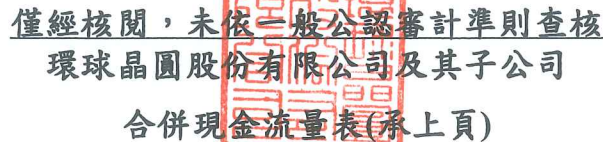 僅經核閱，未依一般公認審計準則查核
環球晶圓股份有限公司及其子公司
合併現金流量表(承上頁)